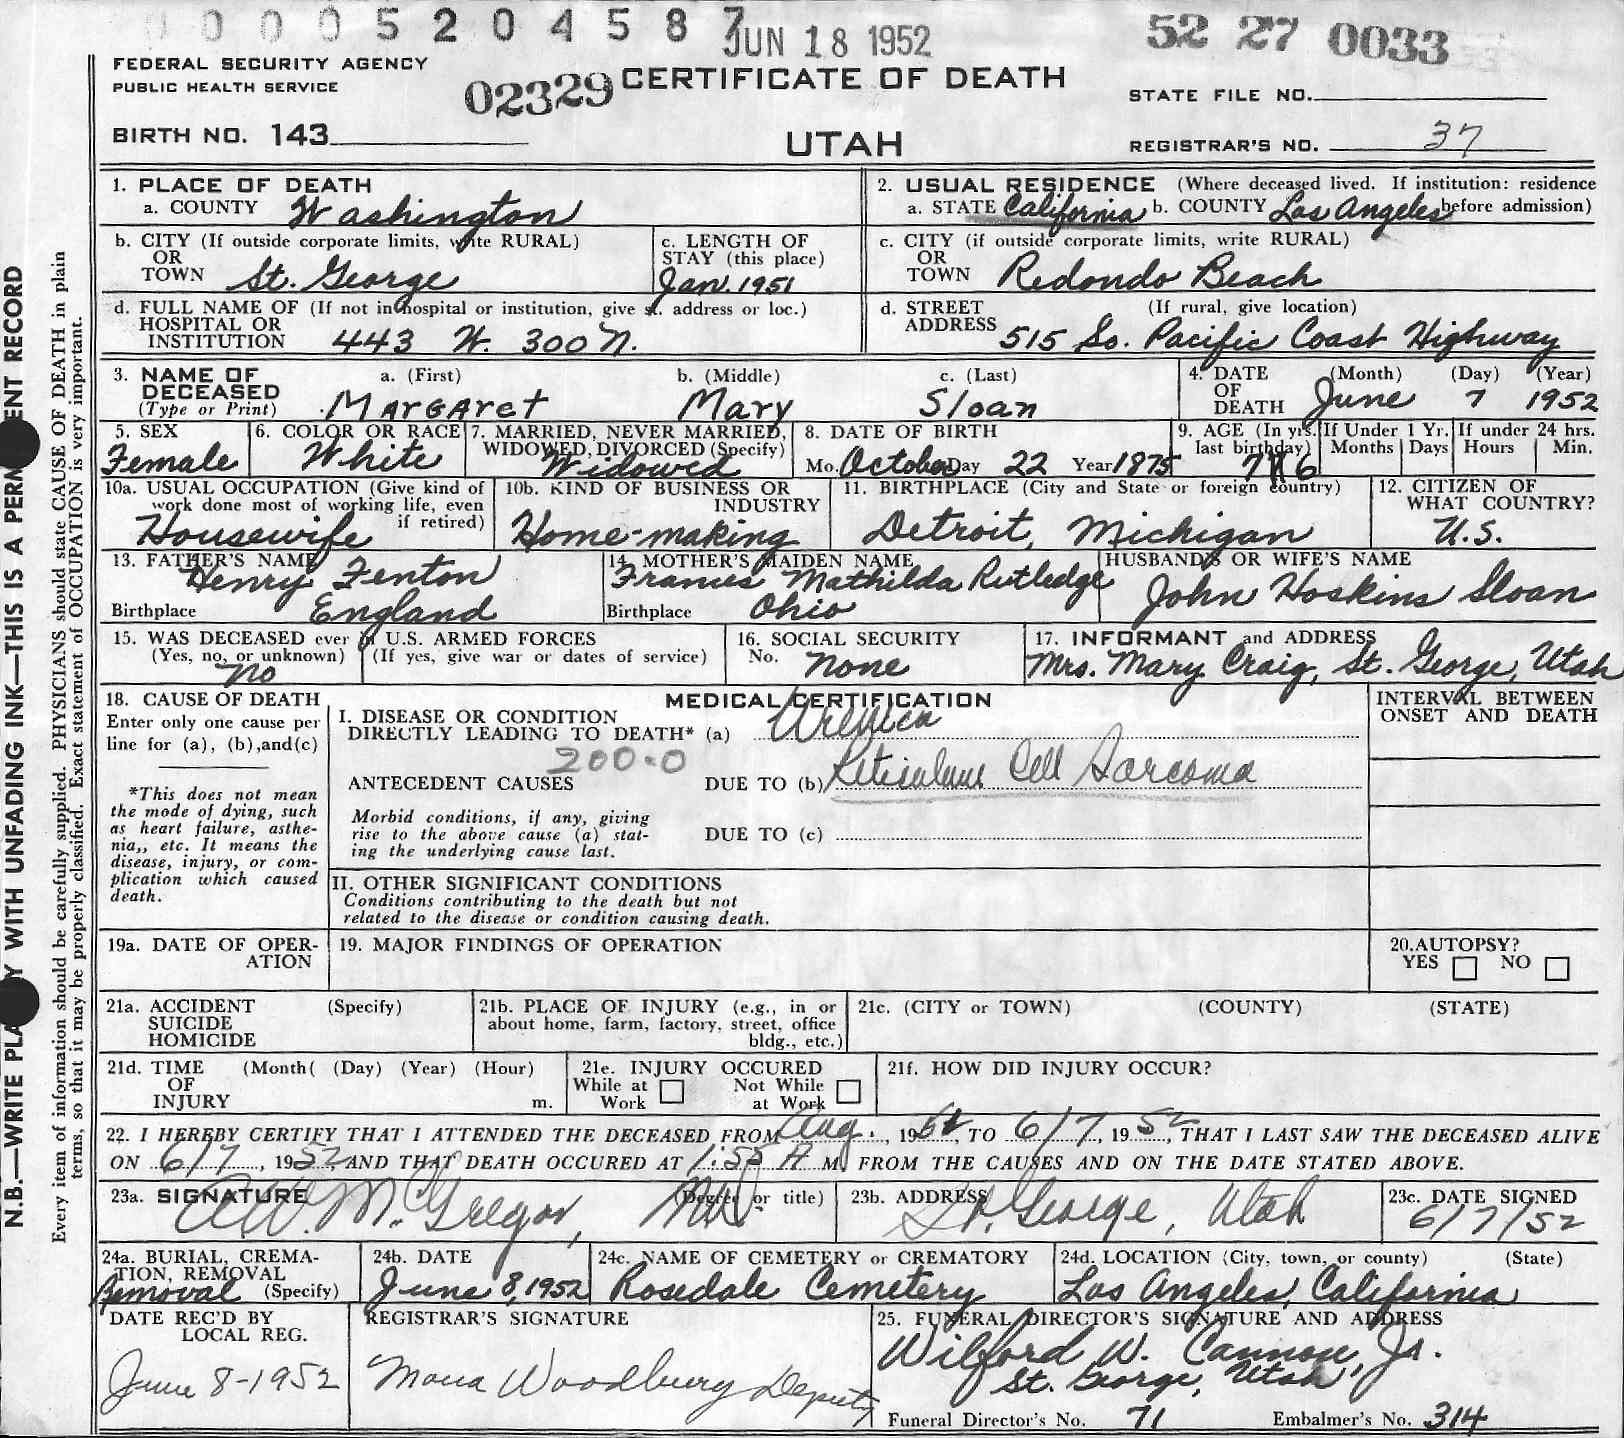 0 0 0 0 5 2 0 4 5 8 7
JUN 18 1952
52 27 0033
FEDERAL SECURITY AGENCY
PUBLIC HEALTH SERVICE
02329
CERTIFICATE OF DEATH
STATE FILE NO.
BIRTH NO. 143
UTAH
REGISTRAR'S NO. 37
1. PLACE OF DEATH
a. COUNTY Washington
2. USUAL RESIDENCE (Where deceased lived. If institution: residence
a. STATE California b. COUNTY Los Angeles before admission)
b. CITY (If outside corporate limits, write RURAL)
OR
TOWN St. George
c. LENGTH OF
STAY (this place)
Jan. 1951
c. CITY (if outside corporate limits, write RURAL)
OR
TOWN Redondo Beach
d. FULL NAME OF (If not in hospital or institution, give st. address or loc.)
HOSPITAL OR
INSTITUTION 443 W. 300 N.
d. STREET (If rural, give location)
ADDRESS 515 So. Pacific Coast Highway
3. NAME OF a. (First) b. (Middle) c. (Last)
DECEASED
(Type or Print) Margaret Mary Sloan
4. DATE (Month) (Day) (Year)
OF
DEATH June 7 1952
5. SEX
Female
6. COLOR OR RACE
White
7. MARRIED, NEVER MARRIED,
WIDOWED, DIVORCED (Specify)
Widowed
8. DATE OF BIRTH
Mo. October Day 22 Year 1875
9. AGE (In yrs.
last birthday)
76
If Under 1 Yr.
Months Days
If under 24 hrs.
Hours Min.
10a. USUAL OCCUPATION (Give kind of
work done most of working life, even
if retired)
Housewife
10b. KIND OF BUSINESS OR
INDUSTRY
Home-making
11. BIRTHPLACE (City and State or foreign country)
Detroit, Michigan
12. CITIZEN OF
WHAT COUNTRY?
U.S.
13. FATHER'S NAME
Henry Fenton
Birthplace England
14. MOTHER'S MAIDEN NAME
Frances Mathilda Rutledge
Birthplace Ohio
HUSBAND'S OR WIFE'S NAME
John Hoskins Sloan
15. WAS DECEASED ever in U.S. ARMED FORCES
(Yes, no, or unknown) (If yes, give war or dates of service)
No
16. SOCIAL SECURITY
No. none
17. INFORMANT and ADDRESS
Mrs. Mary Craig, St. George, Utah
18. CAUSE OF DEATH
Enter only one cause per
line for (a), (b), and (c)
*This does not mean
the mode of dying, such
as heart failure, asthe-
nia,, etc. It means the
disease, injury, or com-
plication which caused
death.
MEDICAL CERTIFICATION
I. DISEASE OR CONDITION
DIRECTLY LEADING TO DEATH* (a) Uremia
200.0
ANTECEDENT CAUSES DUE TO (b) Reticulum Cell Sarcoma
Morbid conditions, if any, giving
rise to the above cause (a) stat-
ing the underlying cause last.
DUE TO (c)
II. OTHER SIGNIFICANT CONDITIONS
Conditions contributing to the death but not
related to the disease or condition causing death.
INTERVAL BETWEEN
ONSET AND DEATH
19a. DATE OF OPER-
ATION
19. MAJOR FINDINGS OF OPERATION
20. AUTOPSY?
YES NO
21a. ACCIDENT (Specify)
SUICIDE
HOMICIDE
21b. PLACE OF INJURY (e.g., in or
about home, farm, factory, street, office
bldg., etc.)
21c. (CITY or TOWN) (COUNTY) (STATE)
21d. TIME (Month( (Day) (Year) (Hour)
OF
INJURY m.
21e. INJURY OCCURED
While at Not While
Work at Work
21f. HOW DID INJURY OCCUR?
22. I HEREBY CERTIFY THAT I ATTENDED THE DECEASED FROM Aug., 19 TO 6/7, 1952, THAT I LAST SAW THE DECEASED ALIVE
ON 6/7, 1952 AND THAT DEATH OCCURED AT 1:55 A M. FROM THE CAUSES AND ON THE DATE STATED ABOVE.
23a. SIGNATURE (Degree or title)
A.W. McGregor, MD
23b. ADDRESS
St. George, Utah
23c. DATE SIGNED
6/7/52
24a. BURIAL, CREMA-
TION, REMOVAL
Removal (Specify)
24b. DATE
June 8, 1952
24c. NAME OF CEMETERY or CREMATORY
Rosedale Cemetery
24d. LOCATION (City, town, or county) (State)
Los Angeles, California
DATE REC'D BY
LOCAL REG.
June 8-1952
REGISTRAR'S SIGNATURE
Mona Woodbury Deputy
25. FUNERAL DIRECTOR'S SIGNATURE AND ADDRESS
Wilford W. Cannon, Jr.
St. George, Utah
Funeral Director's No. 71 Embalmer's No. 314
N.B.—WRITE PLA Y WITH UNFADING INK—THIS IS A PERM ENT RECORD
Every item of information should be carefully supplied. PHYSICIANS should state CAUSE OF DEATH in plain
terms, so that it may be properly classified. Exact statement of OCCUPATION is very important.